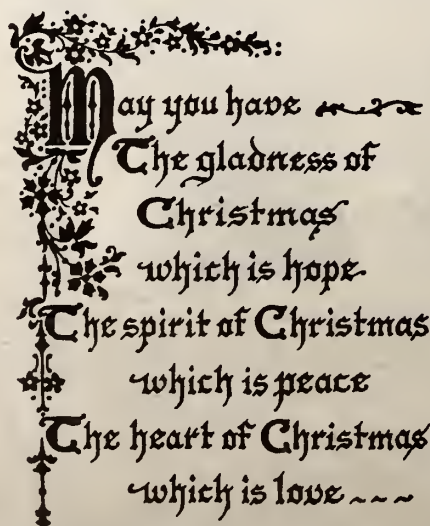 May you have
The gladness of
Christmas
which is hope
The spirit of Christmas
which is peace
The heart of Christmas
which is love ~~~